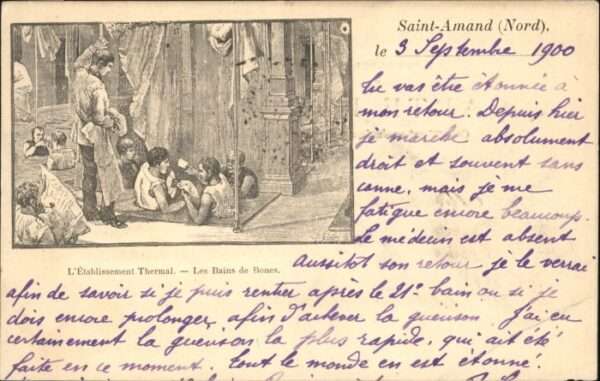 Saint-Amand (Nord),
le 3 Septembre 1900
tu vas être étonnée à
mon retour. Depuis hier
je marche absolument
droit et souvent sans
canne, mais je me
fatigue encore beaucoup.
Le médecin est absent
L'Établissement Thermal. — Les Bains de Boues.
aussitot son retour je le verrai
afin de savoir si je puis rentrer après le 21e bain ou si je
dois encore prolonger, afin d'achever la guérison J'ai eu
certainement la guérison la plus rapide, qui ait été
faite en ce moment. tout le monde en est étonné.